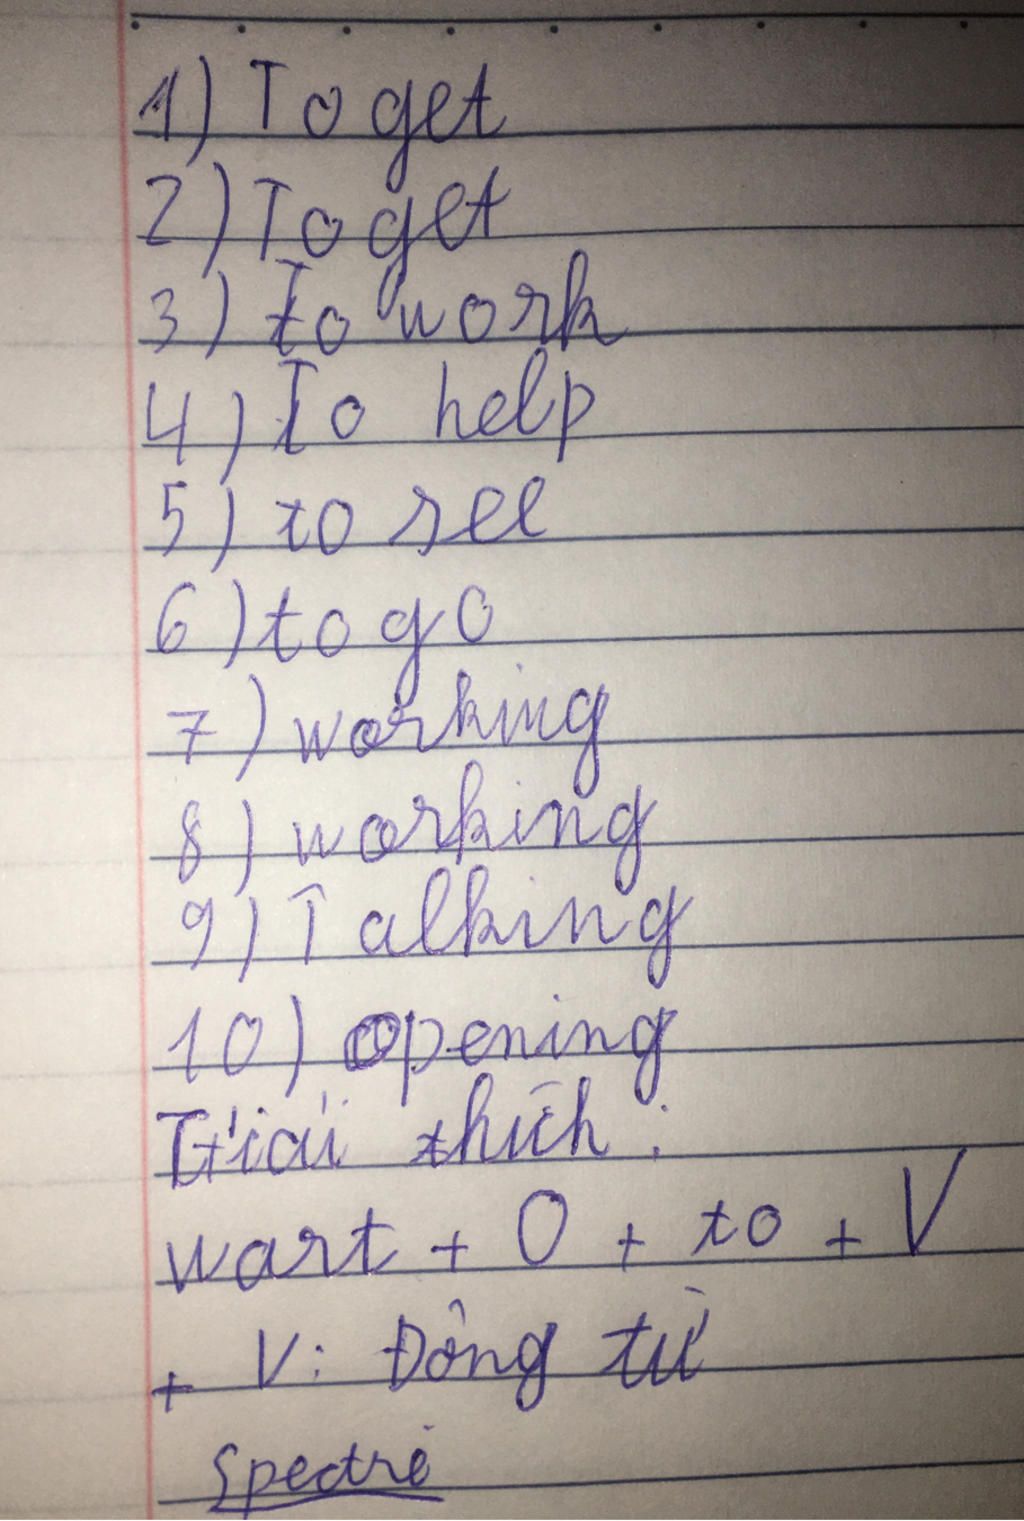 1) To get
2) To get
3) to work
4) To help
5) to see
6) to go
7) working
8) working
9) Talking
10) opening
Giải thích:
wart + O + to + V
+ V: Động từ
Spectre